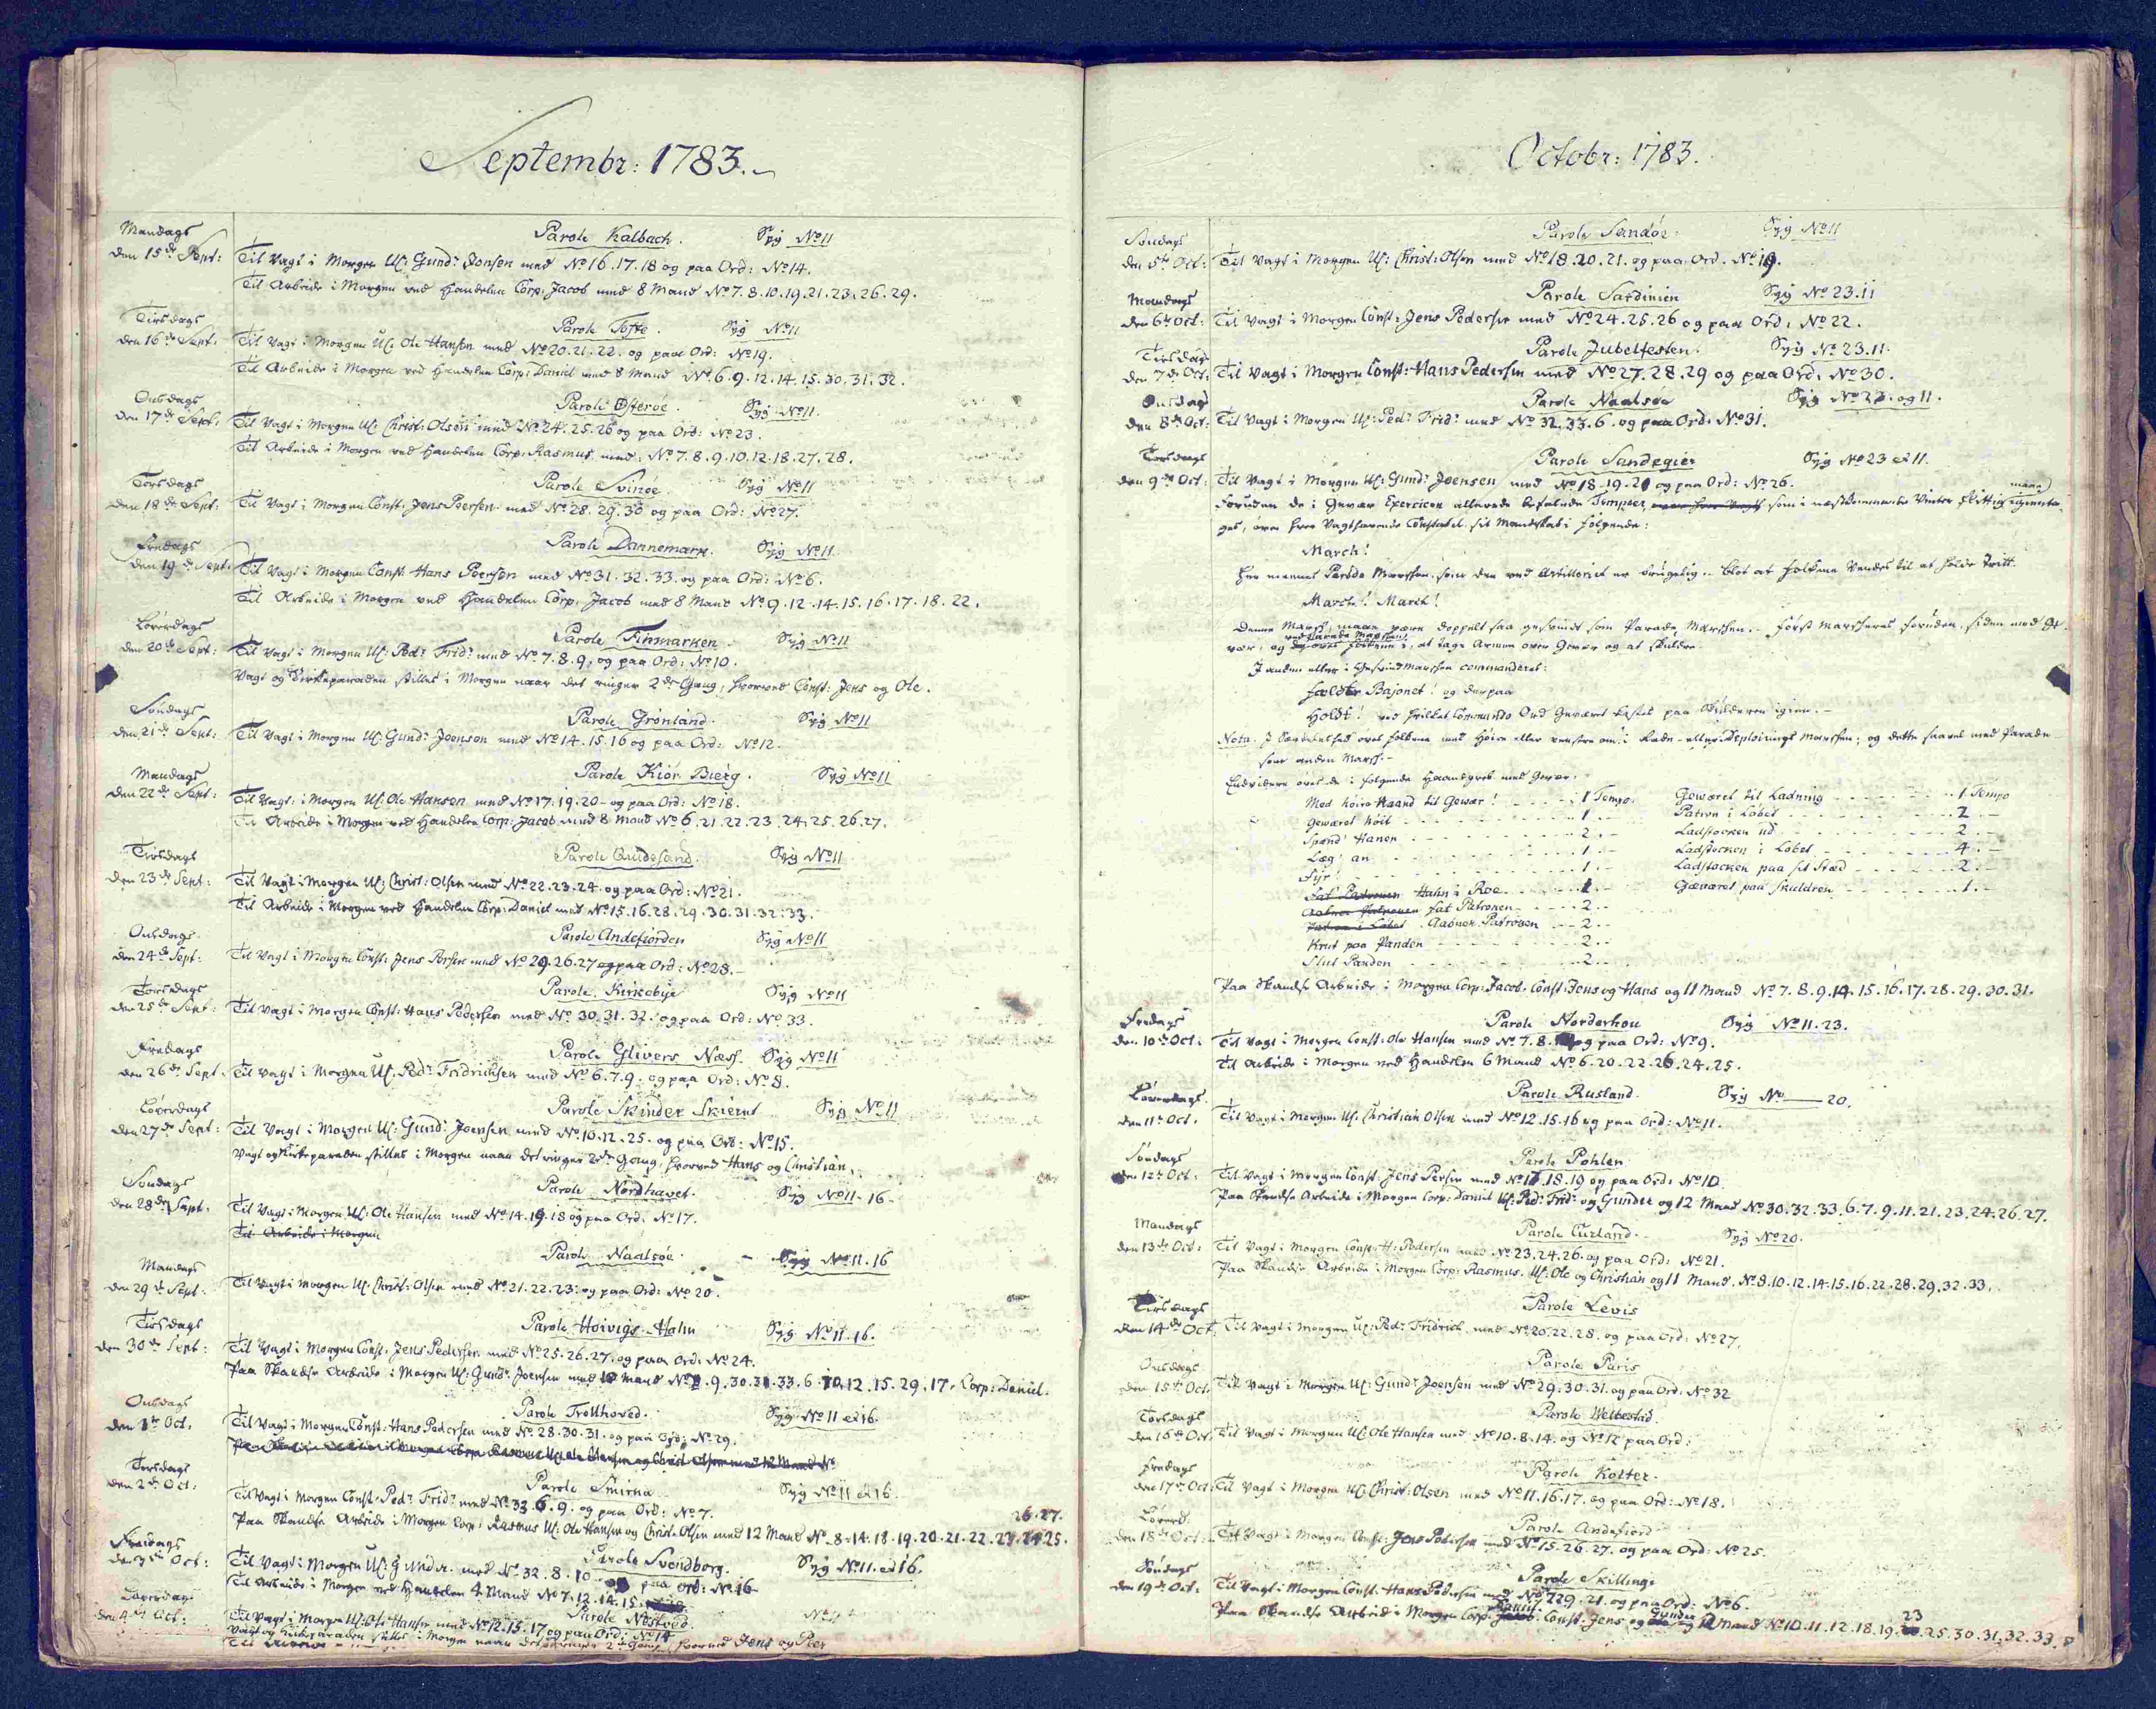 Septembr: 1783.
Mandags Parole Kalbach. Syg No 11
den 15de Sept: Til Vagt i Morgen U: Gund: Jonsen med No 16.17.18 og paa Ord: No 14.
Til Arbeide i Morgen ved Handelen Corp: Jacob med 8 Mand No 7.8.10.19.21.23.26.29.
Tirsdags Parole Tofte. Syg No 11
den 16de Sept: Til Vagt i Morgen U: Ole Hansen med No 20.21.22. og paa Ord: No 19.
Til Arbeide i Morgen ved Handelen Corp: Daniel med 8 Mand No 6.9.12.14.15.30.31.32.
Onsdags Parole Østerøe. Syg No 11.
den 17de Sept. Til Vagt i Morgen U: Christ: Olsen med No 24.25.26 og paa Ord: No 23.
Til Arbeide i Morgen ved Handelen Corp: Rasmus med: No 7.8.9.10.12.18.27.28.
Torsdags Parole Svinøe. Syg No 11
den 18de Sept: Til Vagt i Morgen Const. Jens Peersen med No 28.29.30 og paa Ord: No 27.
Fredags Parole Dannemark. Syg No 11
den 19de Sept: Til Vagt i Morgen Const: Hans Peersen med No 31.32.33. og paa Ord: No 6.
Til Arbeide i Morgen ved Handelen Corp: Jacob med 8 Mand No 9.12.14.15.16.17.18.22.
Løverdags Parole Finmarken. Syg No 11
den 20de Sept: Til Vagt i Morgen U: Ped: Frid: med No 7.8.9. og paa Ord: No 10.
Vagt og Kirkeparaden stilles i Morgen naar det ringer 2de Gang, hvorved Const: Jens og Ole.
Søndags Parole Grønland. Syg No 11
den 21de Sept: Til Vagt i Morgen U: Gund: Joensen med No 14.15.16 og paa Ord: No 12.
Mandags Parole Kiør Bierg. Syg No 11
den 22de Sept: Til Vagt i Morgen U: Ole Hansen med No 17.19.20 og paa Ord: No 18.
Til Arbeide i Morgen ved Handelen Corp: Jacob med 8 Mand No 6.21.22.23.24.25.26.27.
Tirsdags Parole Quidesand. Syg No 11
den 23de Sept: Til Vagt i Morgen U: Christ: Olsen med No 22.23.24. og paa Ord: No 21.
Til Arbeide i Morgen ved Handelen Corp: Daniel med No 15.16.28.29.30.31.32.33.
Onsdags Parole Andefiorden Syg No 11
den 24de Sept: Til Vagt i Morgen Const: Jens Persen med No 29.26.27 og paa Ord: No 28.
Torsdags Parole Kirkebye Syg No 11
den 25de Sept: Til Vagt i Morgen Const: Hans Pedersen med No 30.31.32. og paa Ord: No 33.
Fredags Parole Glivers Næss. Syg No 11
den 26de Sept. Til Vagt i Morgen U: Ped: Fridrichsen med No 6.7.9. og paa Ord: No 8.
Løverdags Parole Skinder Skiernt Syg No 11
den 27de Sept: Til Vagt i Morgen U: Gund: Joensen med No 10.12.25. og paa Ord: No 15.
Vagt og Kirkeparaden stilles i Morgen naar det ringer 2de Gang, hvorved Hans og Christian.
Søndags Parole Nordhavet. Syg No 11.16.
den 28de Sept. Til Vagt i Morgen U: Ole Hansen med No 14.19.18 og paa Ord: No 17.
Til Arbeide i Morgen
Mandags Parole Naalsøe. Syg No 11.16
den 29de Sept: Til Vagt i Morgen U: Christ: Olsen med No 21.22.23. og paa Ord: No 20.
Tirsdags Parole Hoivigs Halm Syg No 11.16.
den 30de Sept: Til Vagt i Morgen Const: Jens Pedersen med No 25.26.27. og paa Ord: No 24.
Paa Skandse Arbeide i Morgen U: Gund: Joensen med Mand No 9.30.31.33.6.10.12.15.29.17. Corp: Daniel.
Onsdags Parole Trollhoved. Syg No 11 et 16.
den 1te Oct. Til Vagt i Morgen Const: Hans Pedersen med No 28.30.31. og paa Ord: No 29.
Torsdags Parole Smirna Syg No 11 et 16
den 2de Oct: Til Vagt i Morgen Const: Ped: Frid: med No 33.6.9. og paa Ord: No 7.
26.27.
Paa Skandse Arbeide i Morgen Corp: Rasmus U: Ole Hansen og Christ: Olsen med 12 Mand No 8.14.18.19.20.21.22.23.24.25.
Fredags Parole Svendborg. Syg No 11. et 16.
den 3de Oct: Til Vagt i Morgen U: Gunder. med No 32.8.10 paa Ord: No 16
Til Arbeide i Morgen ved Handelen 4 Mand No 7.12.14.15.
Løverdags Parole Nestved. No 11
den 4de Oct: Til Vagt i Morgen U: Ole Hansen med No 12.15.17 og paa Ord: No 14
Vagt og Kirkeparaden stilles i Morgen naar det ringer 2de Gang, hvorved Jens og Peer
Octobr: 1783.
Søndags Parole Sandøe. Syg No 11
den 5te Oct: Til Vagt i Morgen U: Christ: Olsen med No 18.20.21. og paa Ord. No 19.
Mandags Parole Sardinien Syg No 23.11
den 6te Oct: Til Vagt i Morgen Const: Jens Pedersen med No 24.25.26 og paa Ord: No 22.
Tirsdags Parole Jubelfesten. Syg No 23.11.
den 7de Oct: Til Vagt i Morgen Const: Hans Pedersen med No 27.28.29 og paa Ord: No 30.
Onsdags Parole Naalsøe Syg No 23. og 11.
den 8de Oct: Til Vagt i Morgen U: Ped: Frid: med No 32.33.6. og paa Ord: No 31.
Torsdags Parole Sandegier Syg No 23 et 11.
den 9de Oct: Til Vagt i Morgen U: Gund: Joensen med No 18.19.20 og paa Ord: No 26.
Foruden de i Gevær Exercicen allerede befalede Tempoer, som i næstkommende Vinter flittig maae igienta-
ges, øver hver Vagthavende Constabel sit Mandskab i følgende:
March!
her menes Parade Marschen, som den ved Artilleriet er brugelig. Blot at folkene Vendes til at holde Tritt.
March! March!
Denne Marsch maae være doppelt saa gesvindt som Parade Marschen. Først marscheres foruden, siden med Ge-
vær, og ved Parade Marschen øves folkene i, at tage Armen over Gevær og at skuldre.
I anden eller i Gesvindmarschen commanderes:
fældt Bajonet! og derpaa
Holdt! ved hvilket Commando Ord Geværet kastes paa Skulderen igien.
som anden Marsch.
Endvidere øves de i følgende Haandgreb med Gevær:
Med høire Haand til Gevær! 1 Tempo. Geværet til Ladning 1 Tempo
Geværet høit 1 Patron i Løbet 2.
Spænd Hanen 2. Ladstocken ud 2.
Læg' an 1. Ladstocken i Løbet 4.
Fyr! 1. Ladstocken paa sit Stæd 2.
Fat Patronen Hahn i Roe 1 Geværet paa Skuldren 1.
Aabner Patronen fat Patronen 2.
Patron i Løbet Aabner Patronen 2.
Krut paa Panden 2.
Slut Panden 2.
Paa Skandse Arbeide i Morgen Corp: Jacob. Const: Jens og Hans og 11 Mand No 7.8.9.14.15.16.17.28.29.30.31.
Fredags Parole Norderhou Syg No 11.23.
den 10de Oct: Til Vagt i Morgen Const: Ole Hansen med No 7.8. og paa Ord: No 9.
Til Arbeide i Morgen ved Handelen 6 Mand No 6.20.22.26.24.25.
Løverdags Parole Rusland. Syg No 20.
den 11te Oct. Til Vagt i Morgen U: Christian Olsen med No 12.15.16 og paa Ord: No 11.
Søndags Parole Pohlen
den 12te Oct: Til Vagt i Morgen Const: Jens Persen med No 17.18.19 og paa Ord: No 10.
Paa Skandse Arbeide i Morgen Corp: Daniel U: Ped: Frid: og Gunder og 12 Mand No 30.32.33.6.7.9.11.21.23.24.26.27.
Mandags Parole Curland. Syg No 20.
den 13de Oct: Til Vagt i Morgen Const: H: Pedersen med No 23.24.26. og paa Ord: No 21.
Paa Skandse Arbeide i Morgen Corp: Rasmus. U: Ole og Christian og 11 Mand. No 8.10.12.14.15.16.22.28.29.32.33.
Tirsdags Parole Levis
den 14de Oct. Til Vagt i Morgen U: Ped: Fridrich. med No 20.22.28. og paa Ord: No 27.
Onsdags Parole Paris
den 15de Oct: Til Vagt i Morgen U: Gund: Joensen med No 29.30.31. og paa Ord: No 32
Torsdags Parole Welbestad.
den 16de Oct. Til Vagt i Morgen U: Ole Hansen med No 10.8.14. og No 12 paa Ord:
Fredags Parole Kolter.
den 17de Oct. Til Vagt i Morgen U: Christ: Olsen med No 11.16.17. og paa Ord: No 18.
Løverd: Parole Andefiord
den 18de Oct: Til Vagt i Morgen Const: Jens Pedersen med No 15.26.27. og paa Ord: No 25.
Søndags Parole Skillinge
den 19de Oct: Til Vagt i Morgen Const: Hans Pedersen med No 7.29.21. og paa Ord: No 6.
Paa Skandse Arbeide i Morgen Corp: Daniel Const: Jens og Gunder og 12 Mand No 10.11.12.18.19.23.25.30.31.32.33.8